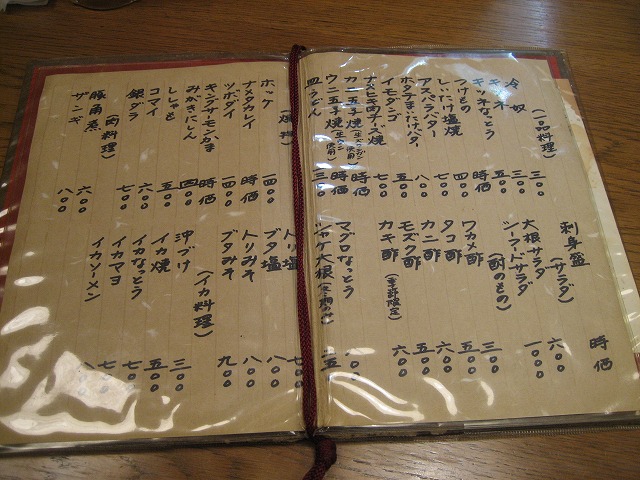 (一品料理)
冷奴 三〇〇
キムチ 三〇〇
キツネなっとう 五〇〇
つけもの 四〇〇
しいたけ塩焼 七〇〇
アスパラバター 八〇〇
ホタテまいたけバター 七〇〇
イモダンゴ 五〇〇
ナスヒキ肉チーズ焼
カニ玉子焼(生ウニ使用) 時価
ウニ玉子焼(生ウニ使用) 時価
皿うどん
刺身盛 時価
(サラダ)
大根サラダ 六〇〇
シーフードサラダ 一〇〇〇
(酢のもの)
ワカメ酢 三〇〇
タコ酢 五〇〇
カニ酢 六〇〇
モズク酢 五〇〇
カキ酢(季節限定) 六〇〇
マグロなっとう
シャケ大根
(焼物)
ホッケ 一四〇〇
ナメタカレイ 時価
ツボダイ 一四〇〇
キングサーモンかま 時価
みがきにしん 四〇〇
ししゃも 五〇〇
コマイ 六〇〇
銀ダラ 七〇〇
(肉料理)
豚角煮 六〇〇
ザンギ 八〇〇
トリ塩 七〇〇
ブタ塩 八〇〇
トリみそ 八〇〇
ブタみそ 九〇〇
(イカ料理)
沖づけ 三〇〇
イカ焼 五〇〇
イカなっとう 七〇〇
イカマヨ 七〇〇
イカソーメン